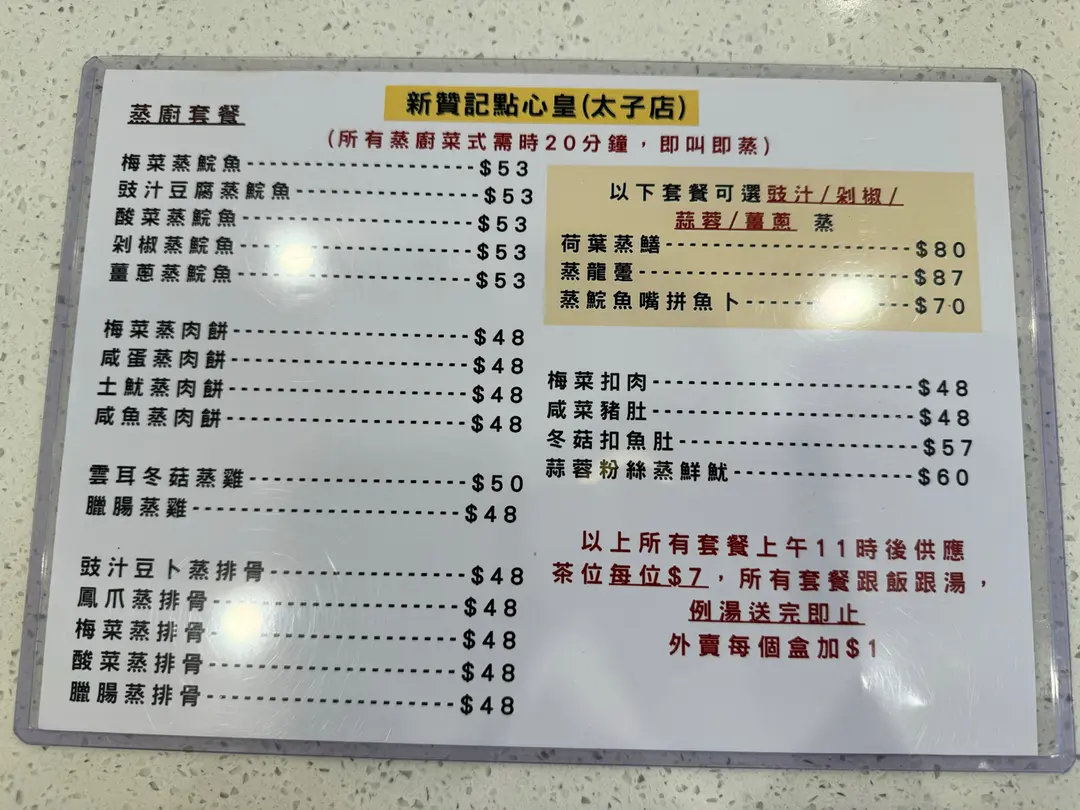 蒸廚套餐
新贊記點心皇(太子店)
(所有蒸廚菜式需時20分鐘，即叫即蒸)
梅菜蒸鯇魚--------------------$53
豉汁豆腐蒸鯇魚--------------------$53
酸菜蒸鯇魚--------------------$53
剁椒蒸鯇魚--------------------$53
薑蔥蒸鯇魚--------------------$53
梅菜蒸肉餅--------------------$48
咸蛋蒸肉餅--------------------$48
土魷蒸肉餅--------------------$48
咸魚蒸肉餅--------------------$48
雲耳冬菇蒸雞--------------------$50
臘腸蒸雞--------------------$48
豉汁豆卜蒸排骨--------------------$48
鳳爪蒸排骨--------------------$48
梅菜蒸排骨--------------------$48
酸菜蒸排骨--------------------$48
臘腸蒸排骨--------------------$48
以下套餐可選豉汁/剁椒/
蒜蓉/薑蔥 蒸
荷葉蒸鱔--------------------$80
蒸龍躉--------------------$87
蒸鯇魚嘴拼魚卜--------------------$70
梅菜扣肉--------------------$48
咸菜豬肚--------------------$48
冬菇扣魚肚--------------------$57
蒜蓉粉絲蒸鮮魷--------------------$60
以上所有套餐上午11時後供應
茶位每位$7，所有套餐跟飯跟湯，
例湯送完即止
外賣每個盒加$1